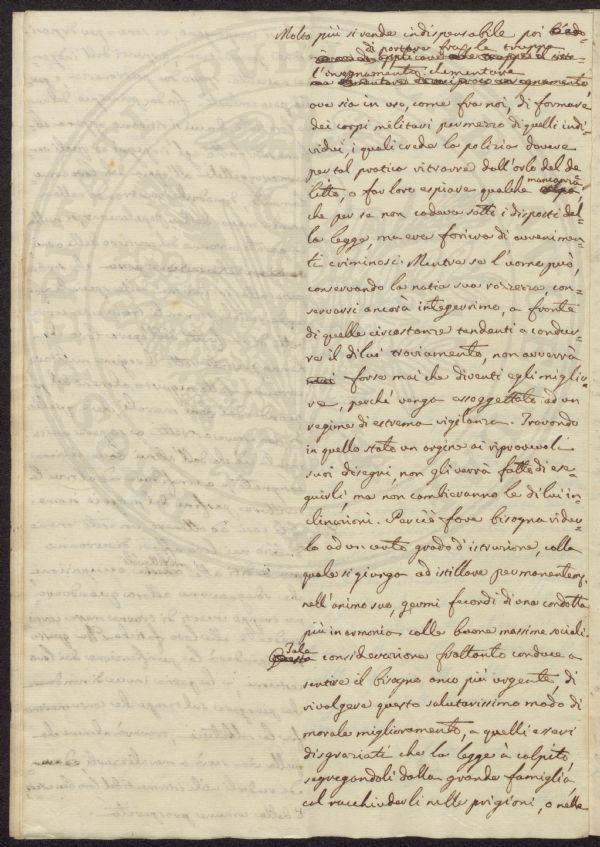 Molto più si rende indispensabile poi
di portare fra le truppe
l'insegnamento elementare
ove sia in uso, come fra noi, di formare
dei corpi militari per mezzo di quelli indi=
vidui, i quali crede la polizia dovere
per tal pratica ritrarre dall'orlo del de=
litto, o far loro espiare qualche mancanza
che per se non cadeva sotto i disposti del=
la legge, ma era foriera di avvenimen=
ti criminosi. Mentre se l'uomo può,
conservando la natia sua rozzezza, con=
servarsi ancora integerrimo, a fronte
di quelle circostanze tendenti a condur=
re il di lui traviamento, non avverrà
forse mai che diventi egli miglio=
re, perché venga assoggettato ad un
regime di estrema vigilanza. Trovando
in quello stato un argine ai riprovevoli
suoi disegni, non gli verrà fatto di ese=
guirli, ma non cambieranno le di lui in=
clinazioni. Perciò fare bisogna ridur=
lo ad un certo grado d'istruzione, colla
quale si giunga ad istillare permanentem.
nell'animo suo, germi fecondi di una condotta
più in armonia colle buone massime sociali.
Tale considerazione frattanto conduce a
sentire il bisogno anco più urgente di
rivolgere questo salutarissimo modo di
morale miglioramento, a quelli esseri
disgraziati che la legge à colpito
segregandoli dalla grande famiglia
col racchiuderli nelle prigioni, o nelle